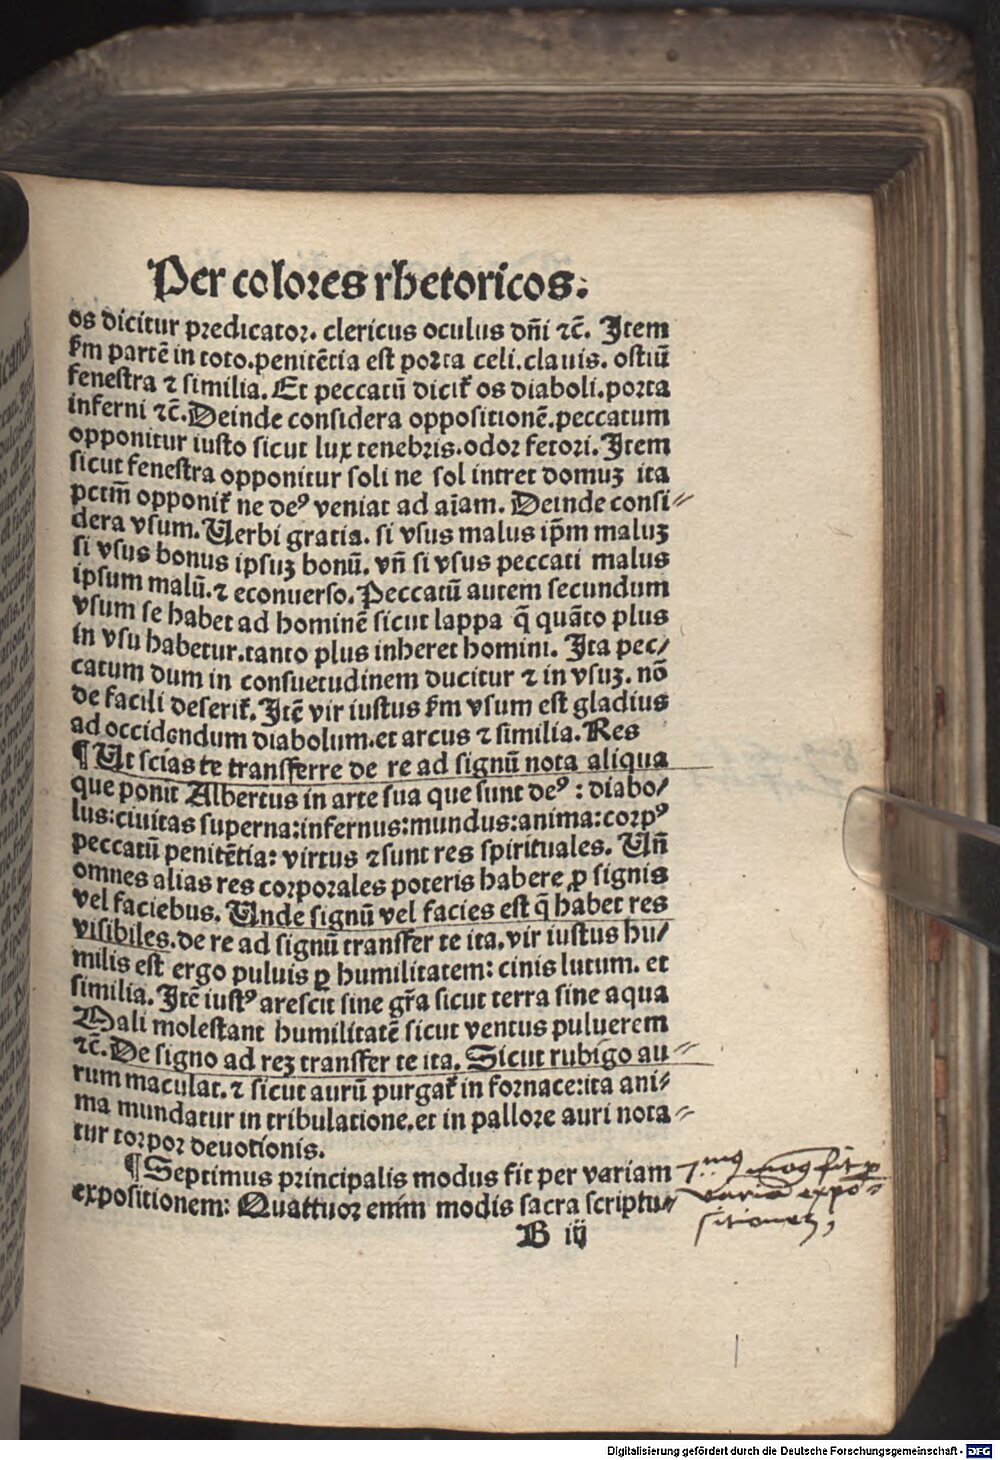 Per colores rhetoricos.
os dicitur predicator. clericus oculus dñi ⁊c̄. Item
ẜm partē in toto.penitētia est porta celi.clauis. ostiū
fenestra ⁊ similia. Et peccatū diciť os diaboli.porta
inferni ⁊c̄. Deinde considera oppositionē.peccatum
opponitur iusto sicut lux tenebris.odor fetori. Item
sicut fenestra opponitur soli ne sol intret domuꝫ ita
pctm̄ opponiť ne deꝰ veniat ad aīam. Deinde consi⸗
dera vsum. Verbi gratia. si vsus malus ip̄m maluꝫ
si vsus bonus ipsuꝫ bonū. vn̄ si vsus peccati malus
ipsum malū.⁊ econuerso. Peccatū autem secundum
vsum se habet ad hominē sicut lappa q̄ quāto plus
in vsu habetur.tanto plus inheret homini. Ita pec/
catum dum in consuetudinem ducitur ⁊ in vsuꝫ. nō
de facili deseriť. Itē vir iustus ẜm vsum est gladius
ad occidendum diabolum.et arcus ⁊ similia. Res
¶ Ut scias te transferre de re ad signū nota aliqua
que ponit Albertus in arte sua que sunt deꝰ : diabo/
lus:ciuitas superna:infernus:mundus:anima:corpꝰ
peccatū penitētia: virtus ⁊sunt res spirituales. Vn̄
omnes alias res corporales poteris habere ꝓ signis
vel faciebus. Unde signū vel facies est q̄ habet res
visibiles.de re ad signū transfer te ita.vir iustus hu/
milis est ergo puluis ꝑ humilitatem: cinis lutum. et
similia. Itē iustꝰ arescit sine gr̄a sicut terra sine aqua
Mali molestant humilitatē sicut ventus puluerem
⁊c̄. De signo ad reꝫ transfer te ita. Sicut rubigo au⸗
rum maculat.⁊ sicut aurū purgať in fornace:ita ani⸗
ma mundatur in tribulatione.et in pallore auri nota⸗
tur torpor deuotionis.
¶ Septimus principalis modus fit per variam
expositionem: Quattuor enim modis sacra scriptu⸗
B iij
7mꝰ modꝰ fit ꝑ
variā expo⸗
sitionez,
Digitalisierung gefördert durch die Deutsche Forschungsgemeinschaft - DFG